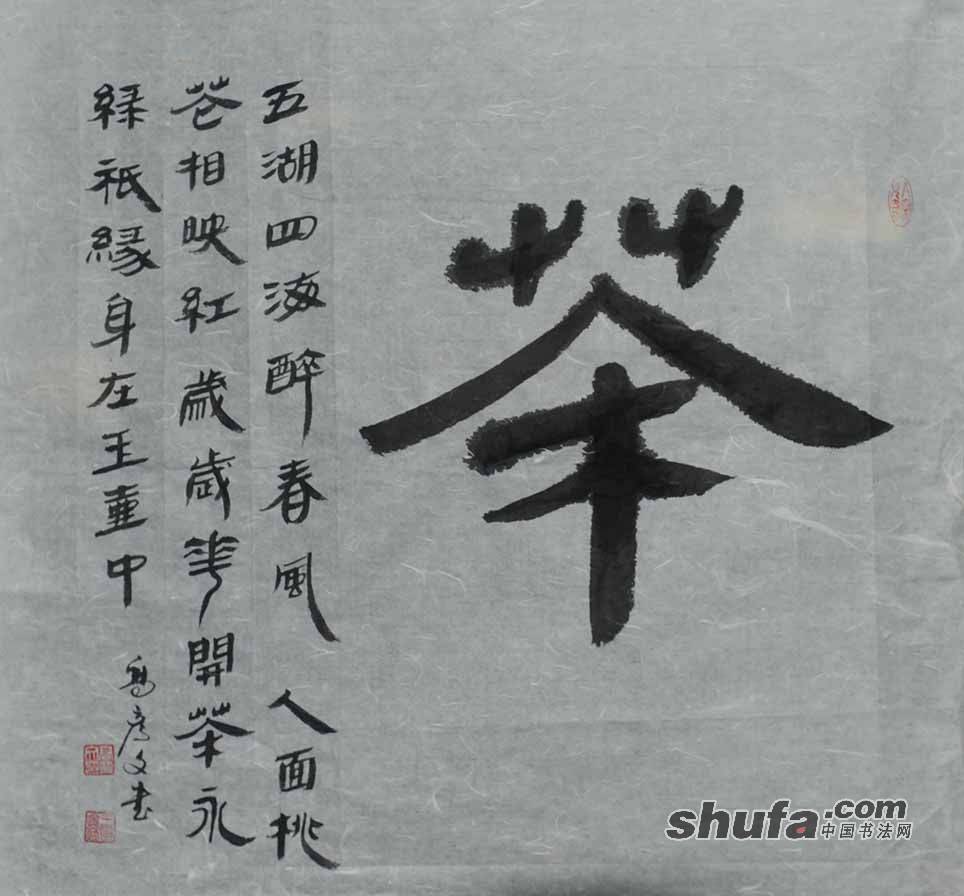 茶
五湖四海醉春風 人面桃
花相映紅歲歲花開茶永
綠祇緣身在玉壺中
彦文書
shufa.com
中国书法网